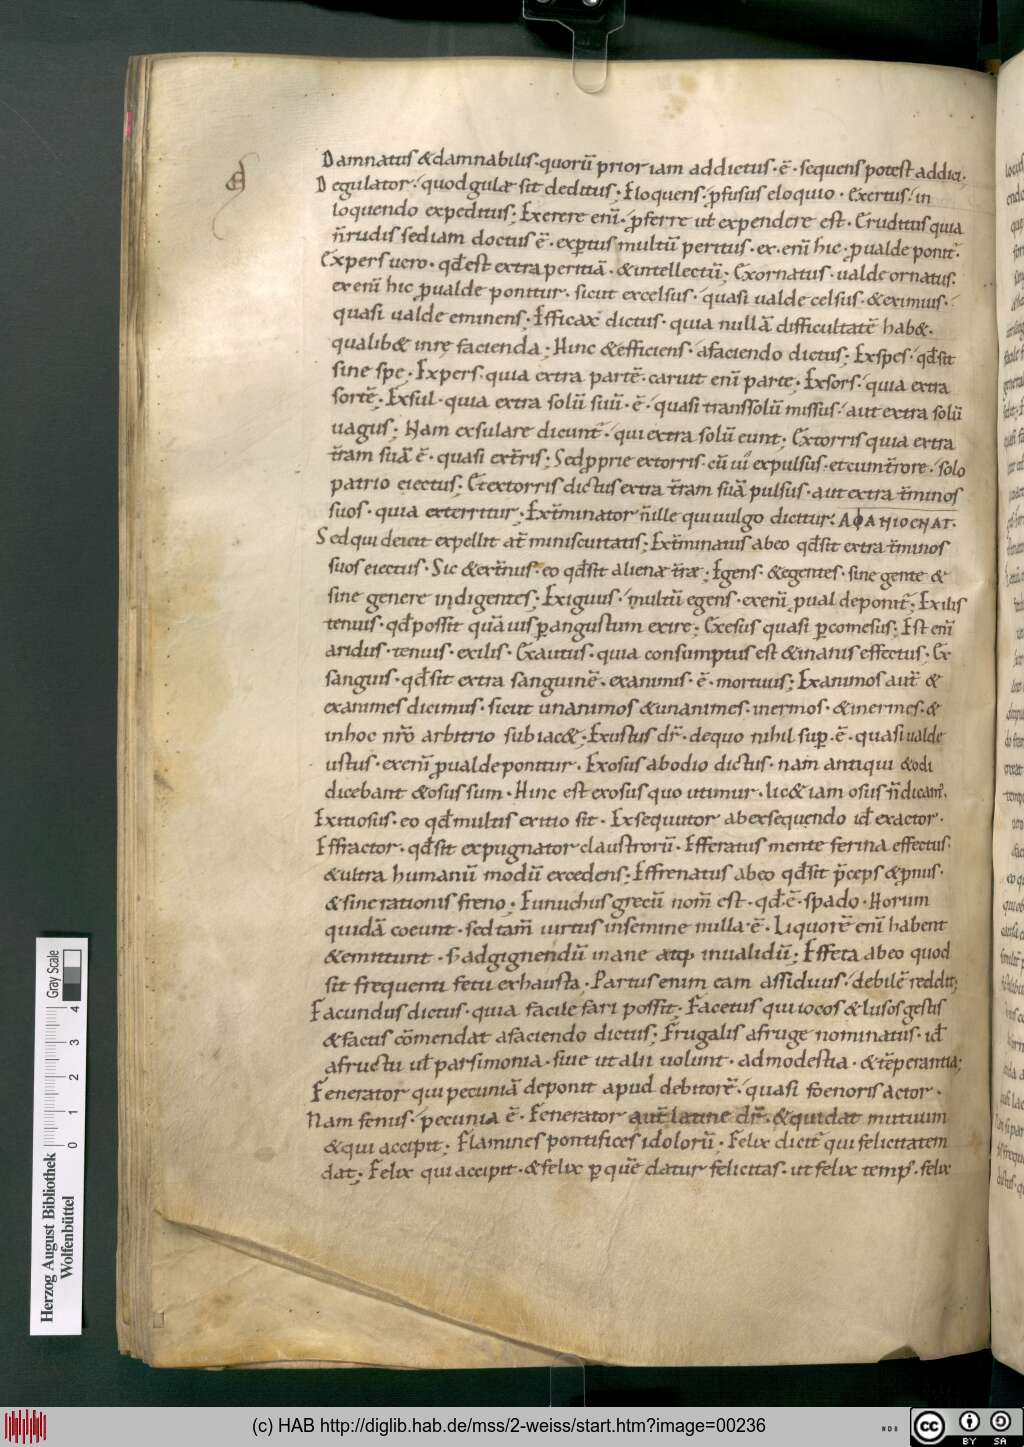 Damnatus & damnabilis· quorū prior iam addictus· ē· sequens potest addici·
Degulator· quod gulæ sit deditus; Eloquens· ꝓfusus eloquio· Exertus· in
loquendo expeditus; Exerere enī· ꝓferre ut̄ expendere est· Eruditus quia
n̄ rudis sed iam doctus ē· expertus multū peritus· ex· enī hic· ꝓ ualde ponit᷑·
Expers uero· qđ est extra peritiā· & intellectū; Exornatus· ualde ornatus·
ex enī hic ꝓ ualde ponitur· sicut excelsus· quasi ualde celsus· & eximius·
quasi ualde eminens; Efficax dictus· quia nullā difficultatē hab&·
qualib& in re facienda; Hinc & efficiens· a faciendo dictus; Exspes· qđ sit
sine spe; Expers· quia extra partē· caruit enī parte; Exsors· quia extra
sortē; Exsul· quia extra solū suū· ē· quasi trans solū missus· aut extra solū
uagus; Nam exsulare dicunt᷑· qui extra solū eunt; Extorris quia extra
t̄ram suā ē· quasi ext̄ris; Sed ꝓprie extorris· cū ui expulsus· et cum t̄rore· solo
patrio eiectus; Et extorris dictus extra t̄ram suā pulsus· aut extra t̄minos
suos· quia exterritur; Ext̄minator n̄ ille qui uulgo dicitur· ΑΦΑΝΙΟϹΗΑΤ·
Sed qui deicit expellit at̄ minis cuitatis; Ext̄minatus ab eo qđ sit extra t̄minos
suos eiectus· Sic & ext̄nus· eo qđ sit alienæ t̄ræ; Egens· & egentes· sine gente &
sine genere indigentes; Exiguus· multū egens· ex enī ꝓ ual de ponit᷑; Exilis
tenuis· qđ possit quāuis ꝑ angustum exire; Exesus quasi ꝑcomesus; Est enī
aridus· tenuis· exilis· Exautus· quia consumptus est & inanis effectus; Ex
sanguis· qđ sit extra sanguinē· exanimis· ē· mortuus; Exanimos aut̄ &
exanimes dicimus· sicut unanimos & unanimes· inermos· & inermes· &
in hoc nr̄o arbitrio subiac&; Exustus dr̄· de quo nihil suꝑ· ē· quasi ualde
ustus· ex enī ꝓ ualde ponitur· Exosus ab odio dictus· nam antiqui & odi
dicebant & osus sum· Hinc est exosus quo utimur· lic& iam osus n̄ dicam᷒·
Exitiosus· eo qđ multis exitio sit· Exsequutor ab exsequendo id̄ exactor·
Effractor· qđ sit expugnator claustrorū· Efferatus mente ferina effectus·
& ultra humanū modū excedens; Effrenatus ab eo qđ sit p̄ceps & ꝑnus·
& sine rationis freno; Eunuchus grecū nom̄ est· qđ· ē· spado· Horum
quidā coeunt· sed tam̄ uirtus in semine nulla· ē· Liquorē enī habent
& emittunt· s̄ ad gignendū inane atq̨ inualidū; Effeta ab eo quod
sit frequenti fetu exhausta· Partus enim eam assiduus· debilē reddit;
Facundus dictus· quia facile fari possit· Facetus qui iocos & lusos gestis
& factis cōmendat a faciendo dictus; Frugalis a fruge nominatus· id̄
a fructu ul̄ parsimonia· siue ut alii uolunt· ad modestia· & tēperantia;
Fenerator qui pecuniā deponit apud debitorē· quasi foenoris actor·
Nam fenus· pecunia ē· Fenerator aut̄ latine dr̄· & qui dat mutuum
& qui accipit; Flamines pontifices idolorū· Felix dicit᷑ qui felicitatem
dat; Felix qui accipit· & felix ꝑ quē datur felicitas· ut felix temp᷒· felix
Gray Scale
0 1 2 3 4
Herzog August Bibliothek
Wolfenbüttel
(c) HAB http://diglib.hab.de/mss/2-weiss/start.htm?image=00236
cc BY SA